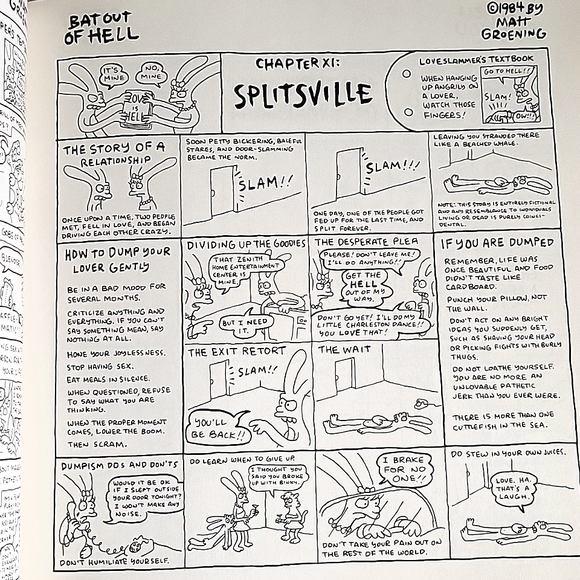 BAT OUT
OF HELL
©1984 BY
MATT
GROENING
IT'S
MINE
NO,
MINE
LOVE
IS
HELL
CHAPTER XI:
SPLITSVILLE
LOVESLAMMER'S TEXTBOOK
WHEN HANGING
UP ANGRILY ON
A LOVER,
WATCH THOSE
FINGERS!
GO TO HELL!!
SLAM!
OW!!
THE STORY OF A
RELATIONSHIP
ONCE UPON A TIME, TWO PEOPLE
MET, FELL IN LOVE, AND BEGAN
DRIVING EACH OTHER CRAZY.
SOON PETTY BICKERING, BALEFUL
STARES, AND DOOR-SLAMMING
BECAME THE NORM.
SLAM!!
SLAM!!
ONE DAY, ONE OF THE PEOPLE GOT
FED UP FOR THE LAST TIME, AND
SPLIT FOREVER.
LEAVING YOU STRANDED THERE
LIKE A BEACHED WHALE.
NOTE: THIS STORY IS ENTIRELY FICTIONAL
AND ANY RESEMBLANCE TO INDIVIDUALS
LIVING OR DEAD IS PURELY COINCI-
DENTAL.
HOW TO DUMP YOUR
LOVER GENTLY
BE IN A BAD MOOD FOR
SEVERAL MONTHS.
CRITICIZE ANYTHING AND
EVERYTHING. IF YOU CAN'T
SAY SOMETHING MEAN, SAY
NOTHING AT ALL.
HONE YOUR JOYLESSNESS.
STOP HAVING SEX.
EAT MEALS IN SILENCE.
WHEN QUESTIONED, REFUSE
TO SAY WHAT YOU ARE
THINKING.
WHEN THE PROPER MOMENT
COMES, LOWER THE BOOM.
THEN SCRAM.
DIVIDING UP THE GOODIES
THAT ZENITH
HOME ENTERTAINMENT
CENTER IS
MINE.
BUT I NEED
IT.
THE DESPERATE PLEA
PLEASE! DON'T LEAVE ME!
I'LL DO ANYTHING!!
GET THE
HELL
OUT OF MY
WAY.
DON'T GO YET! I'LL DO MY
LITTLE CHARLESTON DANCE!!
YOU LOVE THAT!
IF YOU ARE DUMPED
REMEMBER, LIFE WAS
ONCE BEAUTIFUL AND FOOD
DIDN'T TASTE LIKE
CARDBOARD.
PUNCH YOUR PILLOW, NOT
THE WALL.
DON'T ACT ON ANY BRIGHT
IDEAS YOU SUDDENLY GET,
SUCH AS SHAVING YOUR HEAD
OR PICKING FIGHTS WITH BURLY
THUGS.
DO NOT LOATHE YOURSELF.
YOU ARE NO MORE AN
UNLOVABLE PATHETIC
JERK THAN YOU EVER WERE.
THERE IS MORE THAN ONE
CUTTLEFISH IN THE SEA.
THE EXIT RETORT
SLAM!!
YOU'LL
BE BACK!!
THE WAIT
DUMPISM DOS AND DON'TS
WOULD IT BE OK
IF I SLEPT OUTSIDE
YOUR DOOR TONIGHT?
I WON'T MAKE ANY
NOISE.
DON'T HUMILIATE YOURSELF.
DO LEARN WHEN TO GIVE UP.
I THOUGHT YOU
SAID YOU BROKE
UP WITH BINKY.
I BRAKE
FOR NO
ONE!!
DON'T TAKE YOUR PAIN OUT ON
THE REST OF THE WORLD.
DO STEW IN YOUR OWN JUICES.
LOVE. HA.
THAT'S A
LAUGH.